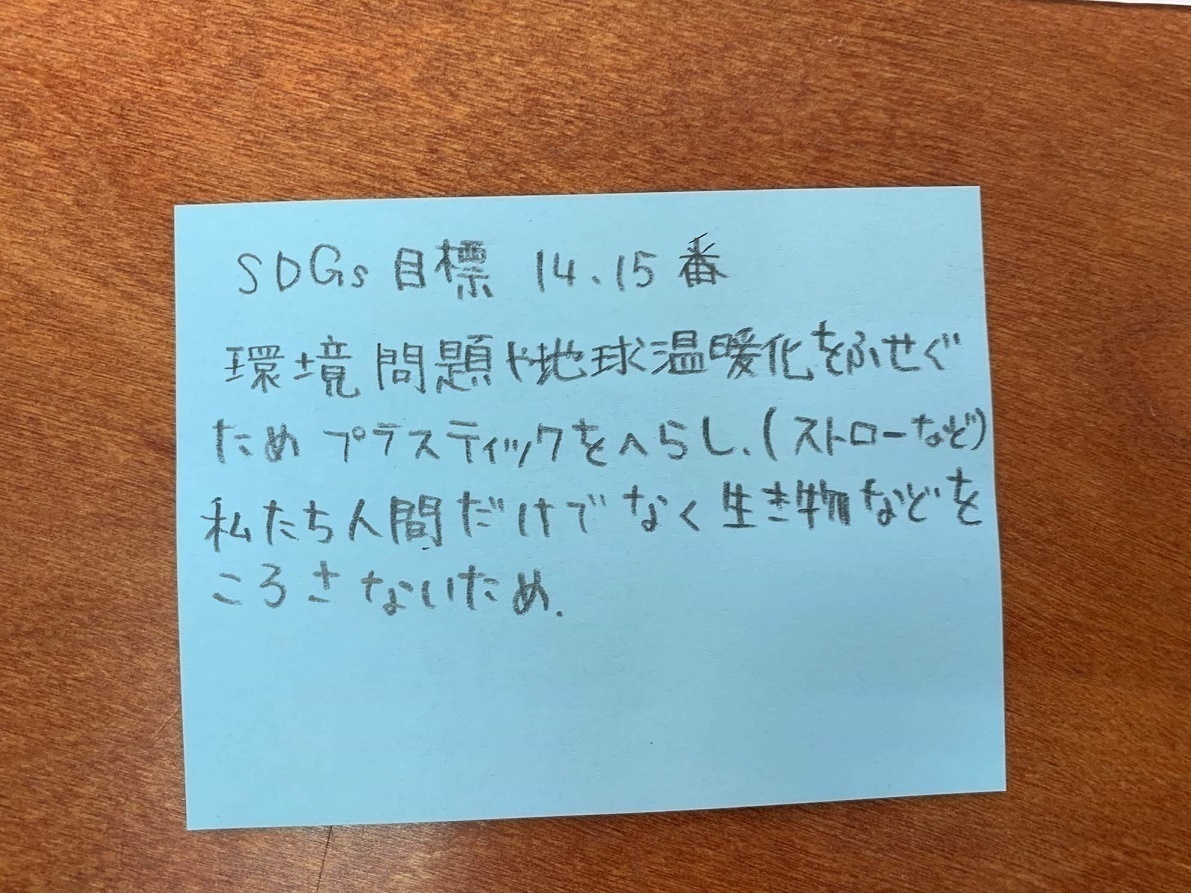 SDGs 目標 14、15番
環境問題や地球温暖化をふせぐ
ためプラスティックをへらし、(ストローなど)
私たち人間だけでなく生き物などを
ころさないため.